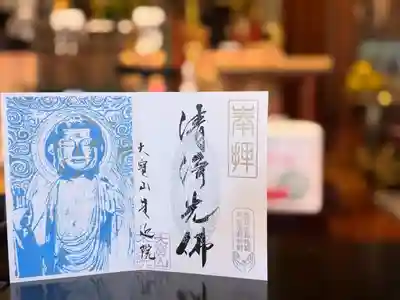 奉拝
清浄光佛
大寶山来迎院